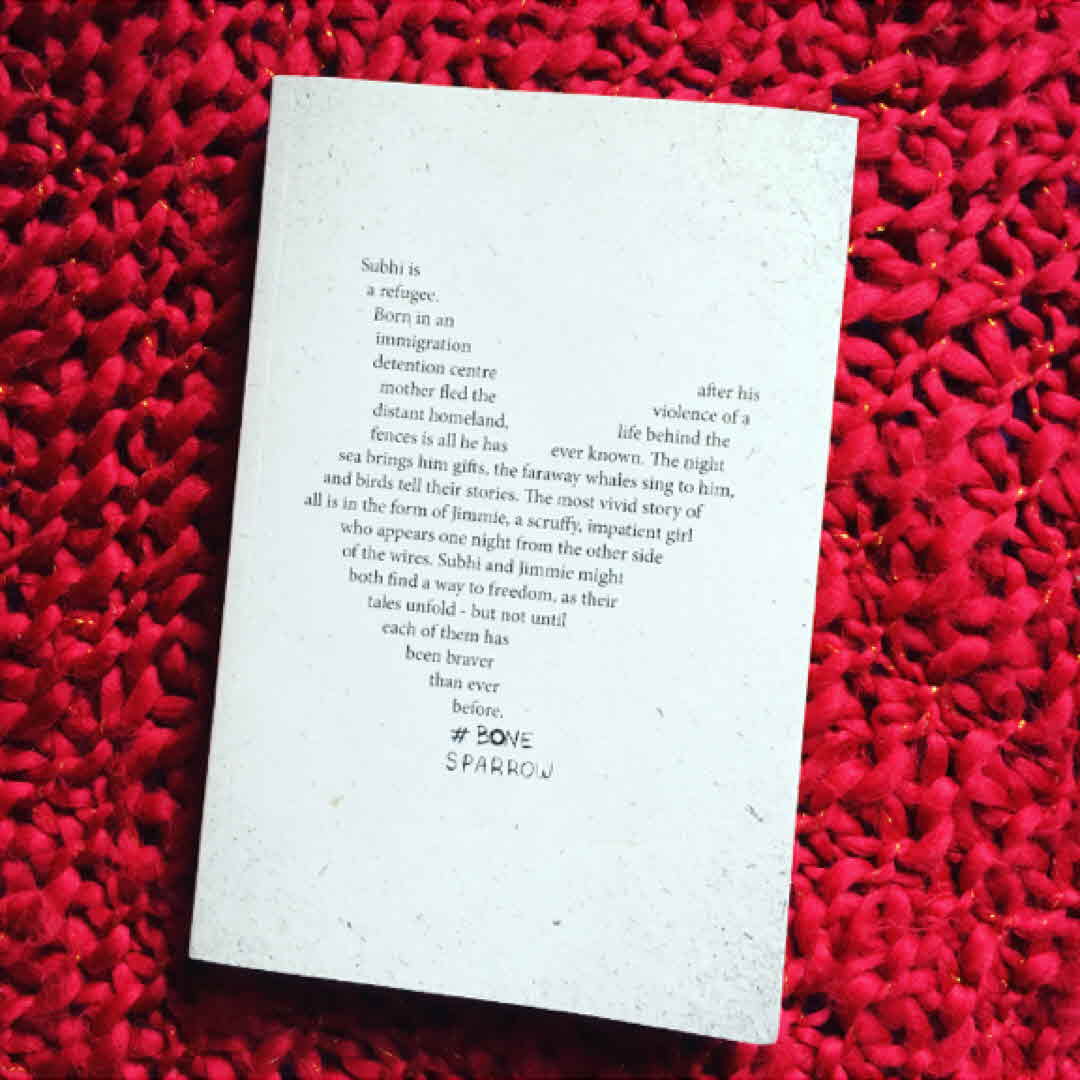 Subhi is
a refugee.
Born in an
immigration
detention centre after his
mother fled the violence of a
distant homeland, life behind the
fences is all he has ever known. The night
sea brings him gifts, the faraway whales sing to him,
and birds tell their stories. The most vivid story of
all is in the form of Jimmie, a scruffy, impatient girl
who appears one night from the other side
of the wires. Subhi and Jimmie might
both find a way to freedom, as their
tales unfold - but not until
each of them has
been braver
than ever
before.
# BONE
SPARROW